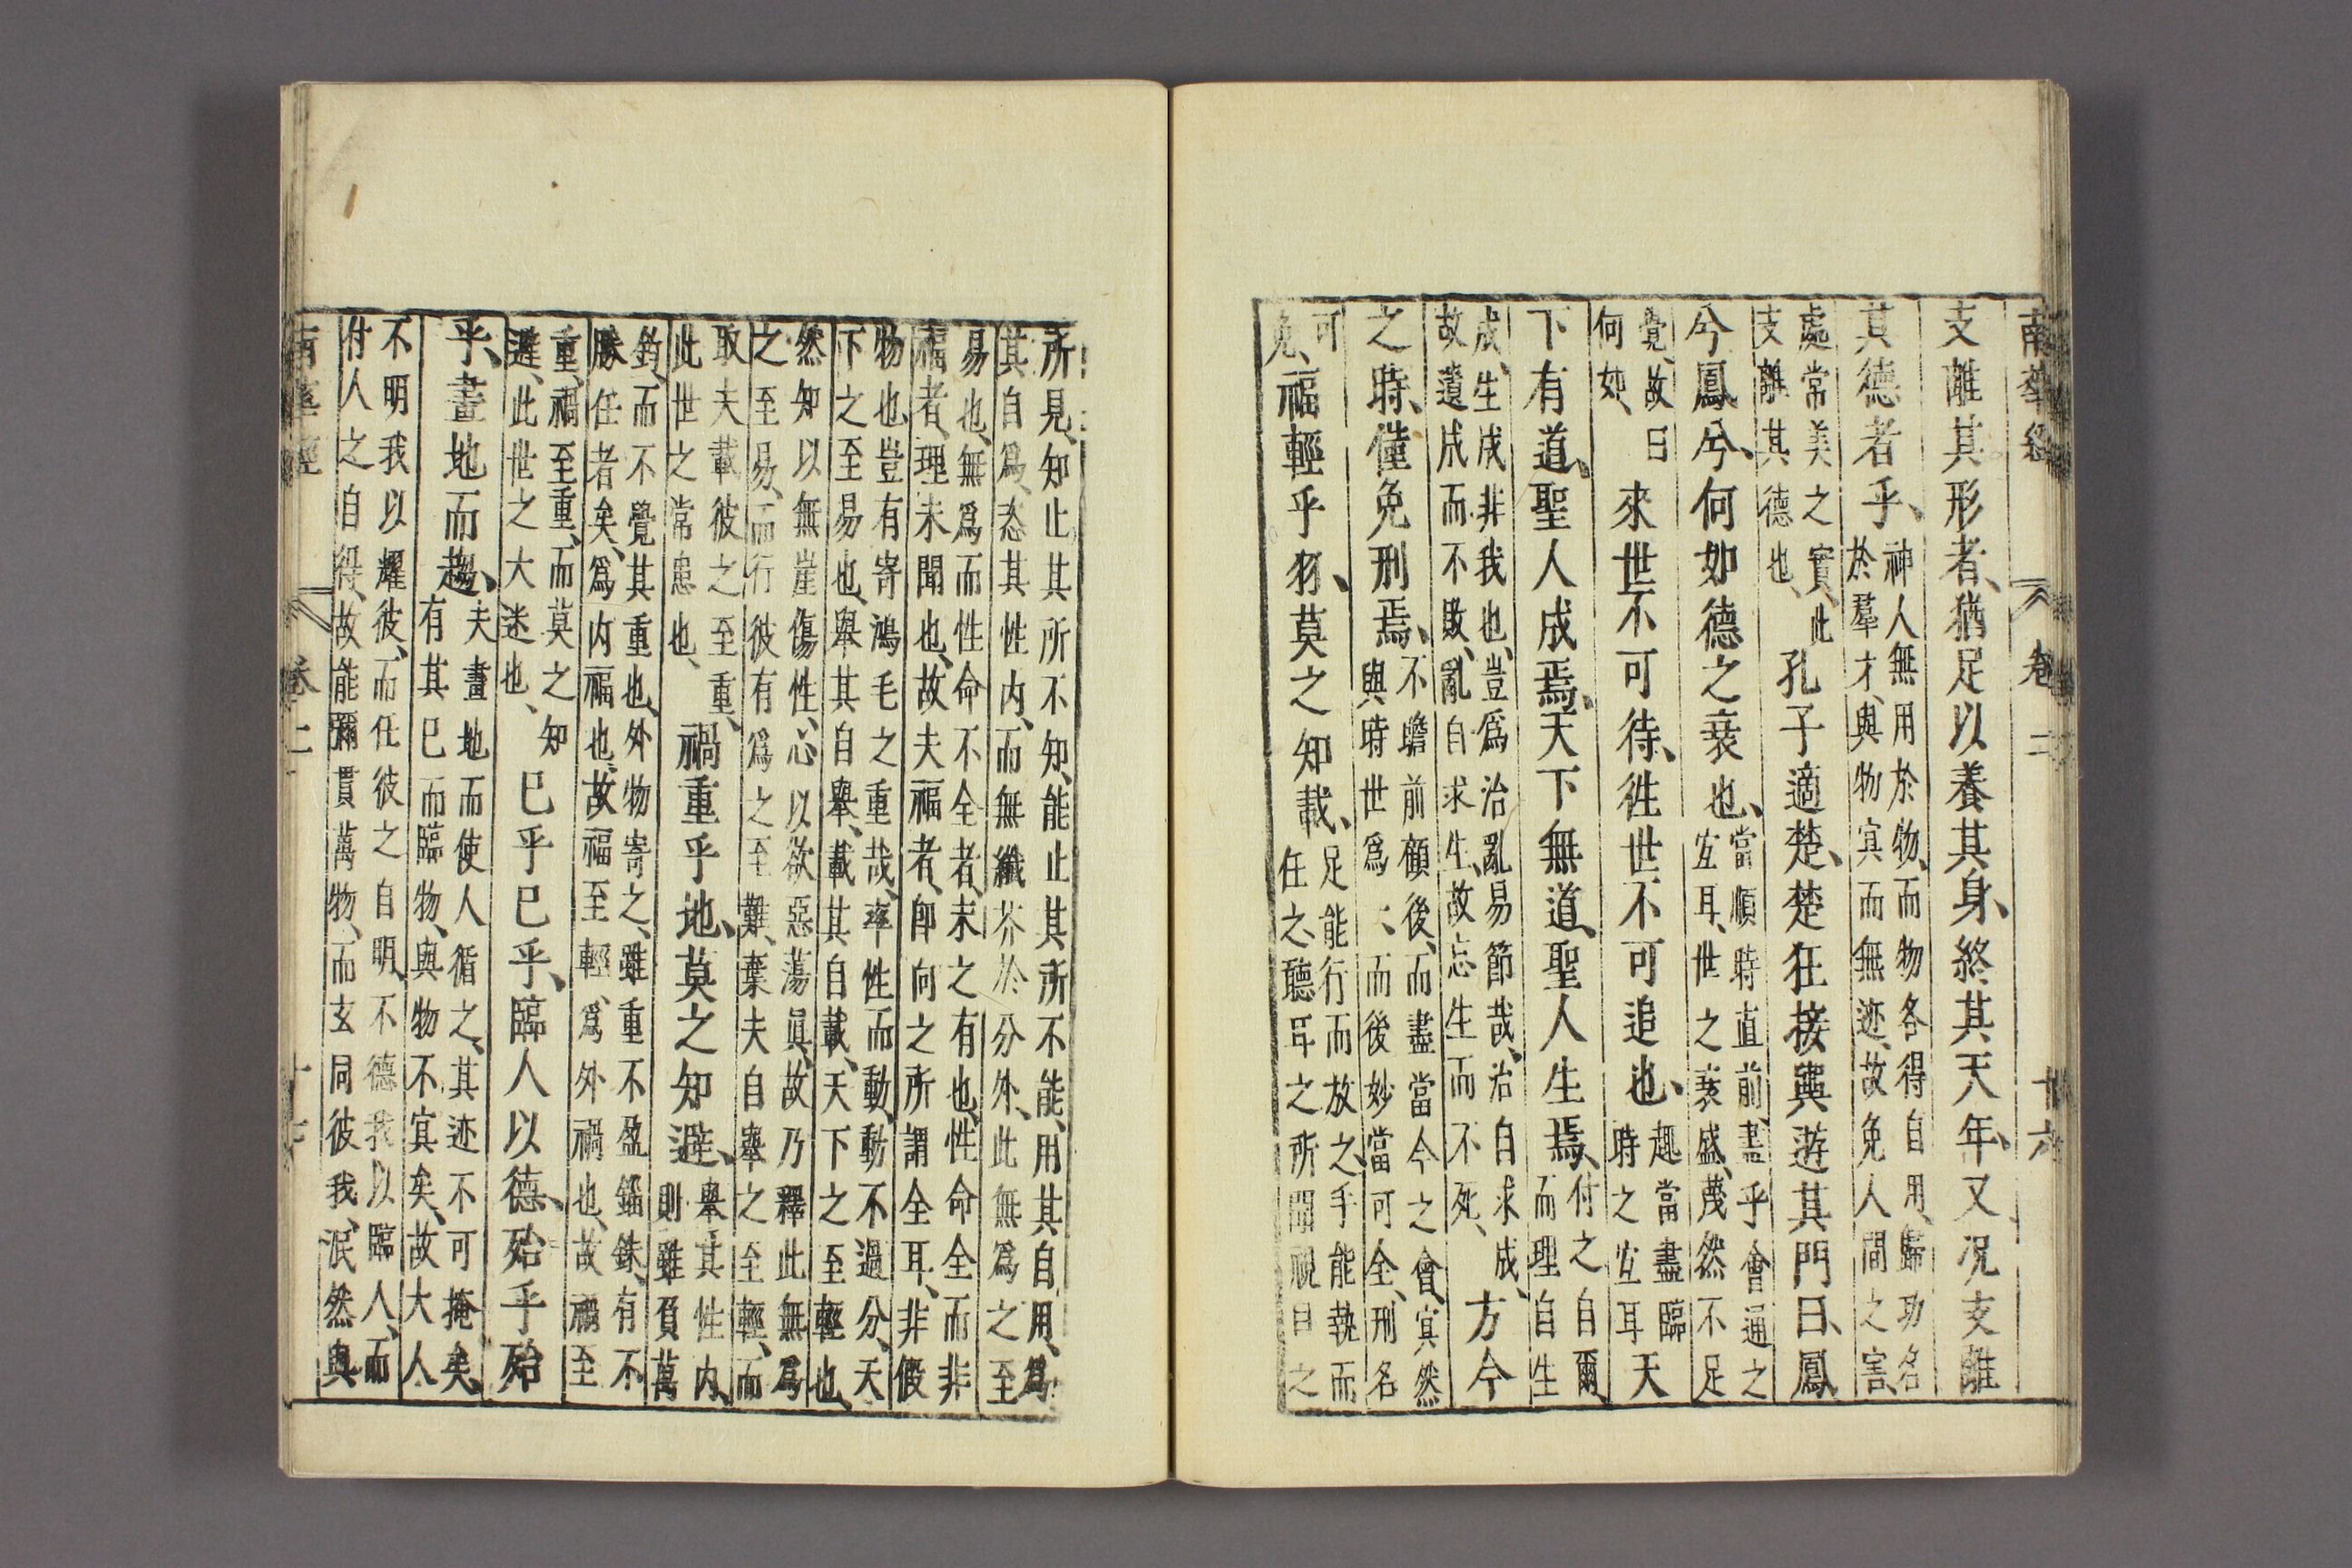 南華經 卷二 廿六
支離其形者、猶足以養其身、終其天年、又況支離
其德者乎、神人無用於物、而物各得自用、歸功名
於羣才、與物冥而無迹、故免人間之害、
處常美之實、此
支離其德也、孔子適楚、楚狂接輿遊其門曰、鳳
兮鳳兮、何如德之衰也、當順時直前、盡乎會通之
宜耳、世之衰盛、蔑然不足
覺、故曰
何如、來世不可待、往世不可追也、趣當盡臨
時之宜耳天
下有道、聖人成焉、天下無道、聖人生焉、付之自爾、
而理自生
成、生成非我也、豈爲治亂易節哉、治自求成、
故遺成而不敗、亂自求生、故忘生而不死、方今
之時、僅免刑焉、不瞻前顧後、而盡當今之會、冥然
與時世爲一、而後妙當可全、刑名
可
免、福輕乎羽、莫之知載、足能行而放之、手能執而
任之、聽耳之所聞、視目之
所見、知止其所不知、能止其所不能、用其自用、爲
其自爲、恣其性内、而無纖芥於分外、此無爲之至
易也、無爲而性命不全者、未之有也、性命全而非
福者、理未聞也、故夫福者、即向之所謂全耳、非假
物也、豈有寄鴻毛之重哉、率性而動、動不過分、天
下之至易也、舉其自舉、載其自載、天下之至輕也、
然知以無崖傷性、心以欲惡蕩眞、故乃釋此無爲
之至易、而行彼有爲之至難、棄夫自舉之至輕、而
取夫載彼之至重、
此世之常患也、禍重乎地、莫之知避、舉其性内、
則雖負萬
鈞、而不覺其重也、外物寄之、雖重不盈錙銖、有不
勝任者矣、爲内福也、故福至輕、爲外禍也、故禍至
重、禍至重、而莫之知
避、此世之大迷也、已乎已乎、臨人以德、殆乎殆
乎、畫地而趨、夫畫地而使人循之、其迹不可掩矣、
有其已而臨物、與物不冥矣、故大人
不明我以耀彼、而任彼之自明、不德我以臨人、而
付人之自得、故能彌貫萬物、而玄同彼我、泯然與
南華經 卷二 十七